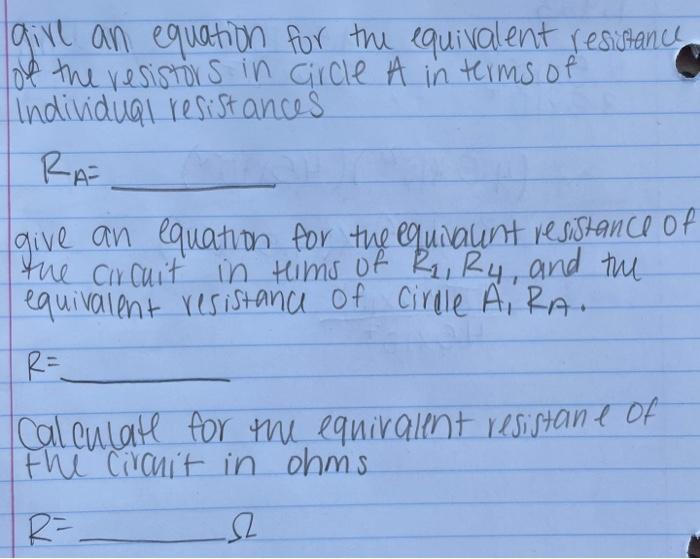 give an equation for the equivalent resistance
of the resistors in circle A in terms of
individual resistances
RA= ________
give an equation for the equivalent resistance of
the circuit in terms of R1, R4, and the
equivalent resistance of circle A, RA.
R= ________
Calculate for the equivalent resistane of
the circuit in ohms
R= ________ Ω